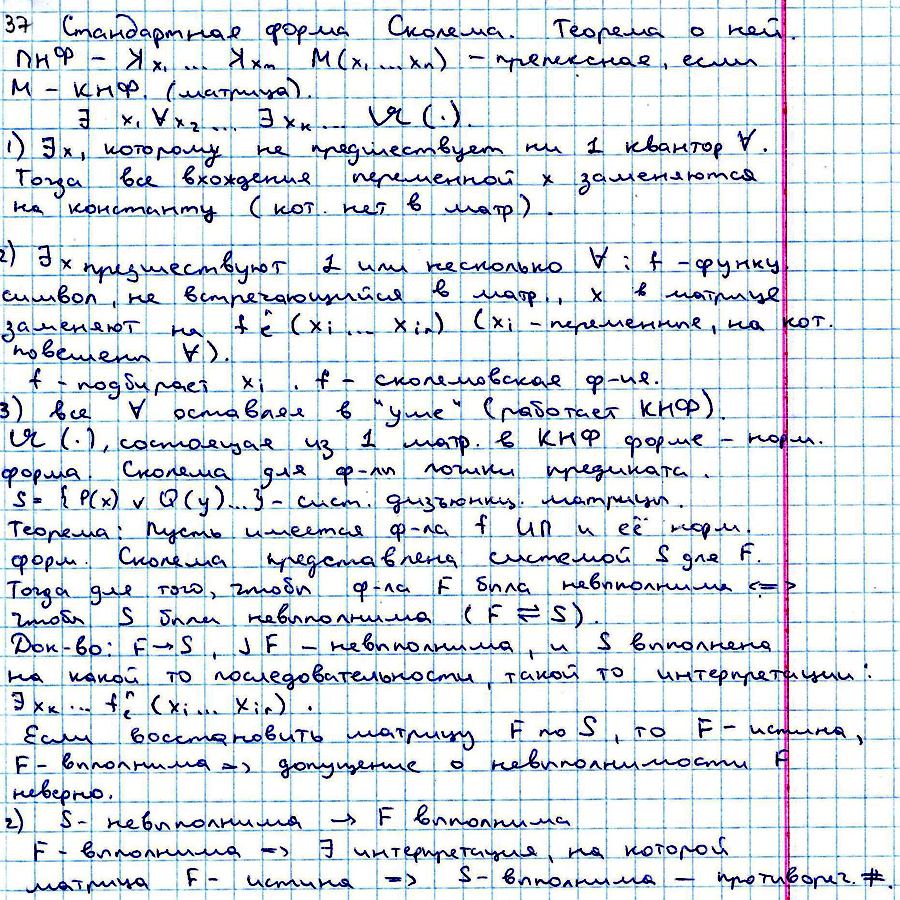 37 Стандартная форма Сколема. Теорема о ней.
ПНФ – Ʞx₁ ... Ʞxn M(x₁ ... xn) – пренексная, если
M – КНФ. (матрица).
∃ x₁ ∀x₂ ... ∃xк ... 𝔄(·).
1) ∃x, которому не предшествует ни 1 квантор ∀.
Тогда все вхождения переменной x заменяются
на константу (кот. нет в матр).
2) ∃x предшествуют 1 или несколько ∀ : f – функц.
символ, не встречающийся в матр., x в матрице
заменяют на f̂i (xi ... xin) (xi – переменные, на кот.
повешен ∀).
f – подбирает xi. f – сколемовская ф-ия.
3) все ∀ оставляя в "уме" (работает КНФ).
𝔄(·), состоящая из 1 матр. в КНФ форме – норм.
форма. Сколема для ф-лы логики предиката.
S = { P(x) ∨ Q(y)...} – сист. дизъюнкц. матрицы.
Теорема: Пусть имеется ф-ла f ИП и её норм.
форм. Сколема представлена системой S для F.
Тогда для того, чтобы ф-ла F была невыполнима <=>
чтобы S была невыполнима (F ⇌ S).
Док-во: F→S, ] F – невыполнима, и S выполнена
на какой то последовательности, такой то интерпретации:
∃xк ... f̂i (xi ... xin).
Если восстановить матрицу F по S, то F – истина,
F – выполнима => допущение о невыполнимости F
неверно.
2) S – невыполнима → F выполнима
F – выполнима => ∃ интерпретация, на которой
матрица F – истина => S – выполнима – противореч. #.